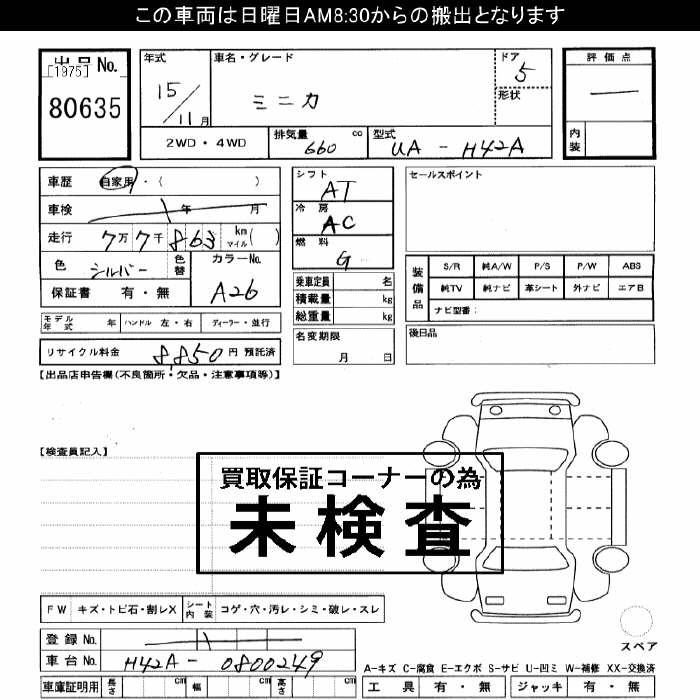 この車両は日曜日AM8:30からの搬出となります
出品No. [1975] 80635
年式 15/11月
車名・グレード ミニカ
ドア 5
形状
評価点 —
内装
2WD・4WD
排気量 660 cc
型式 UA-H42A
車歴 自家用・( )
車検 年 月
走行 7万7千863 km マイル( )
色 シルバー 色替
カラーNo. A26
保証書 有・無
シフト AT
冷房 AC
燃料 G
乗車定員 名
積載量 kg
総重量 kg
セールスポイント
装備品
S/R 純A/W P/S P/W ABS
純TV 純ナビ 革シート 外ナビ エアB
ナビ型番:
モデル年式 年 ハンドル 左・右 ディーラー・並行
名変期限 月 日
後日品
リサイクル料金 8,850円 預託済
【出品店申告欄(不良箇所・欠品・注意事項等)】
【検査員記入】
買取保証コーナーの為
未検査
FW キズ・トビ石・割レX シート内装 コゲ・穴・汚レ・シミ・破レ・スレ
登録No.
車台No. H42A-0800249
スペア
車庫証明用 長さ cm 幅 cm 高さ cm
A-キズ C-腐食 E-エクボ S-サビ U-凹ミ W-補修 XX-交換済
工具 有・無 ジャッキ 有・無